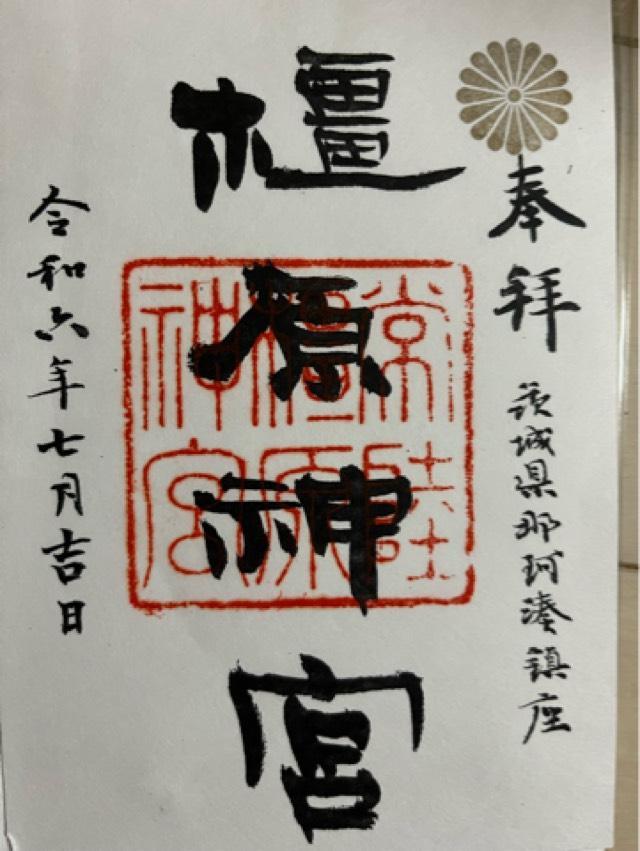 奉拝
茨城県那珂湊鎮座
橿原神宮
常陸
橿原
神宮
令和六年七月吉日